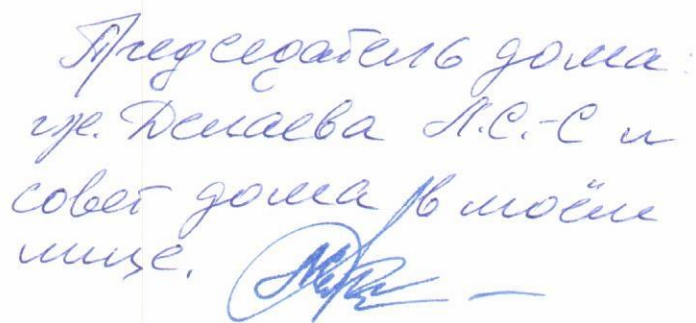 Председатель дома:
гр. Делаева Л.С.-С и
совет дома в моём
лице.